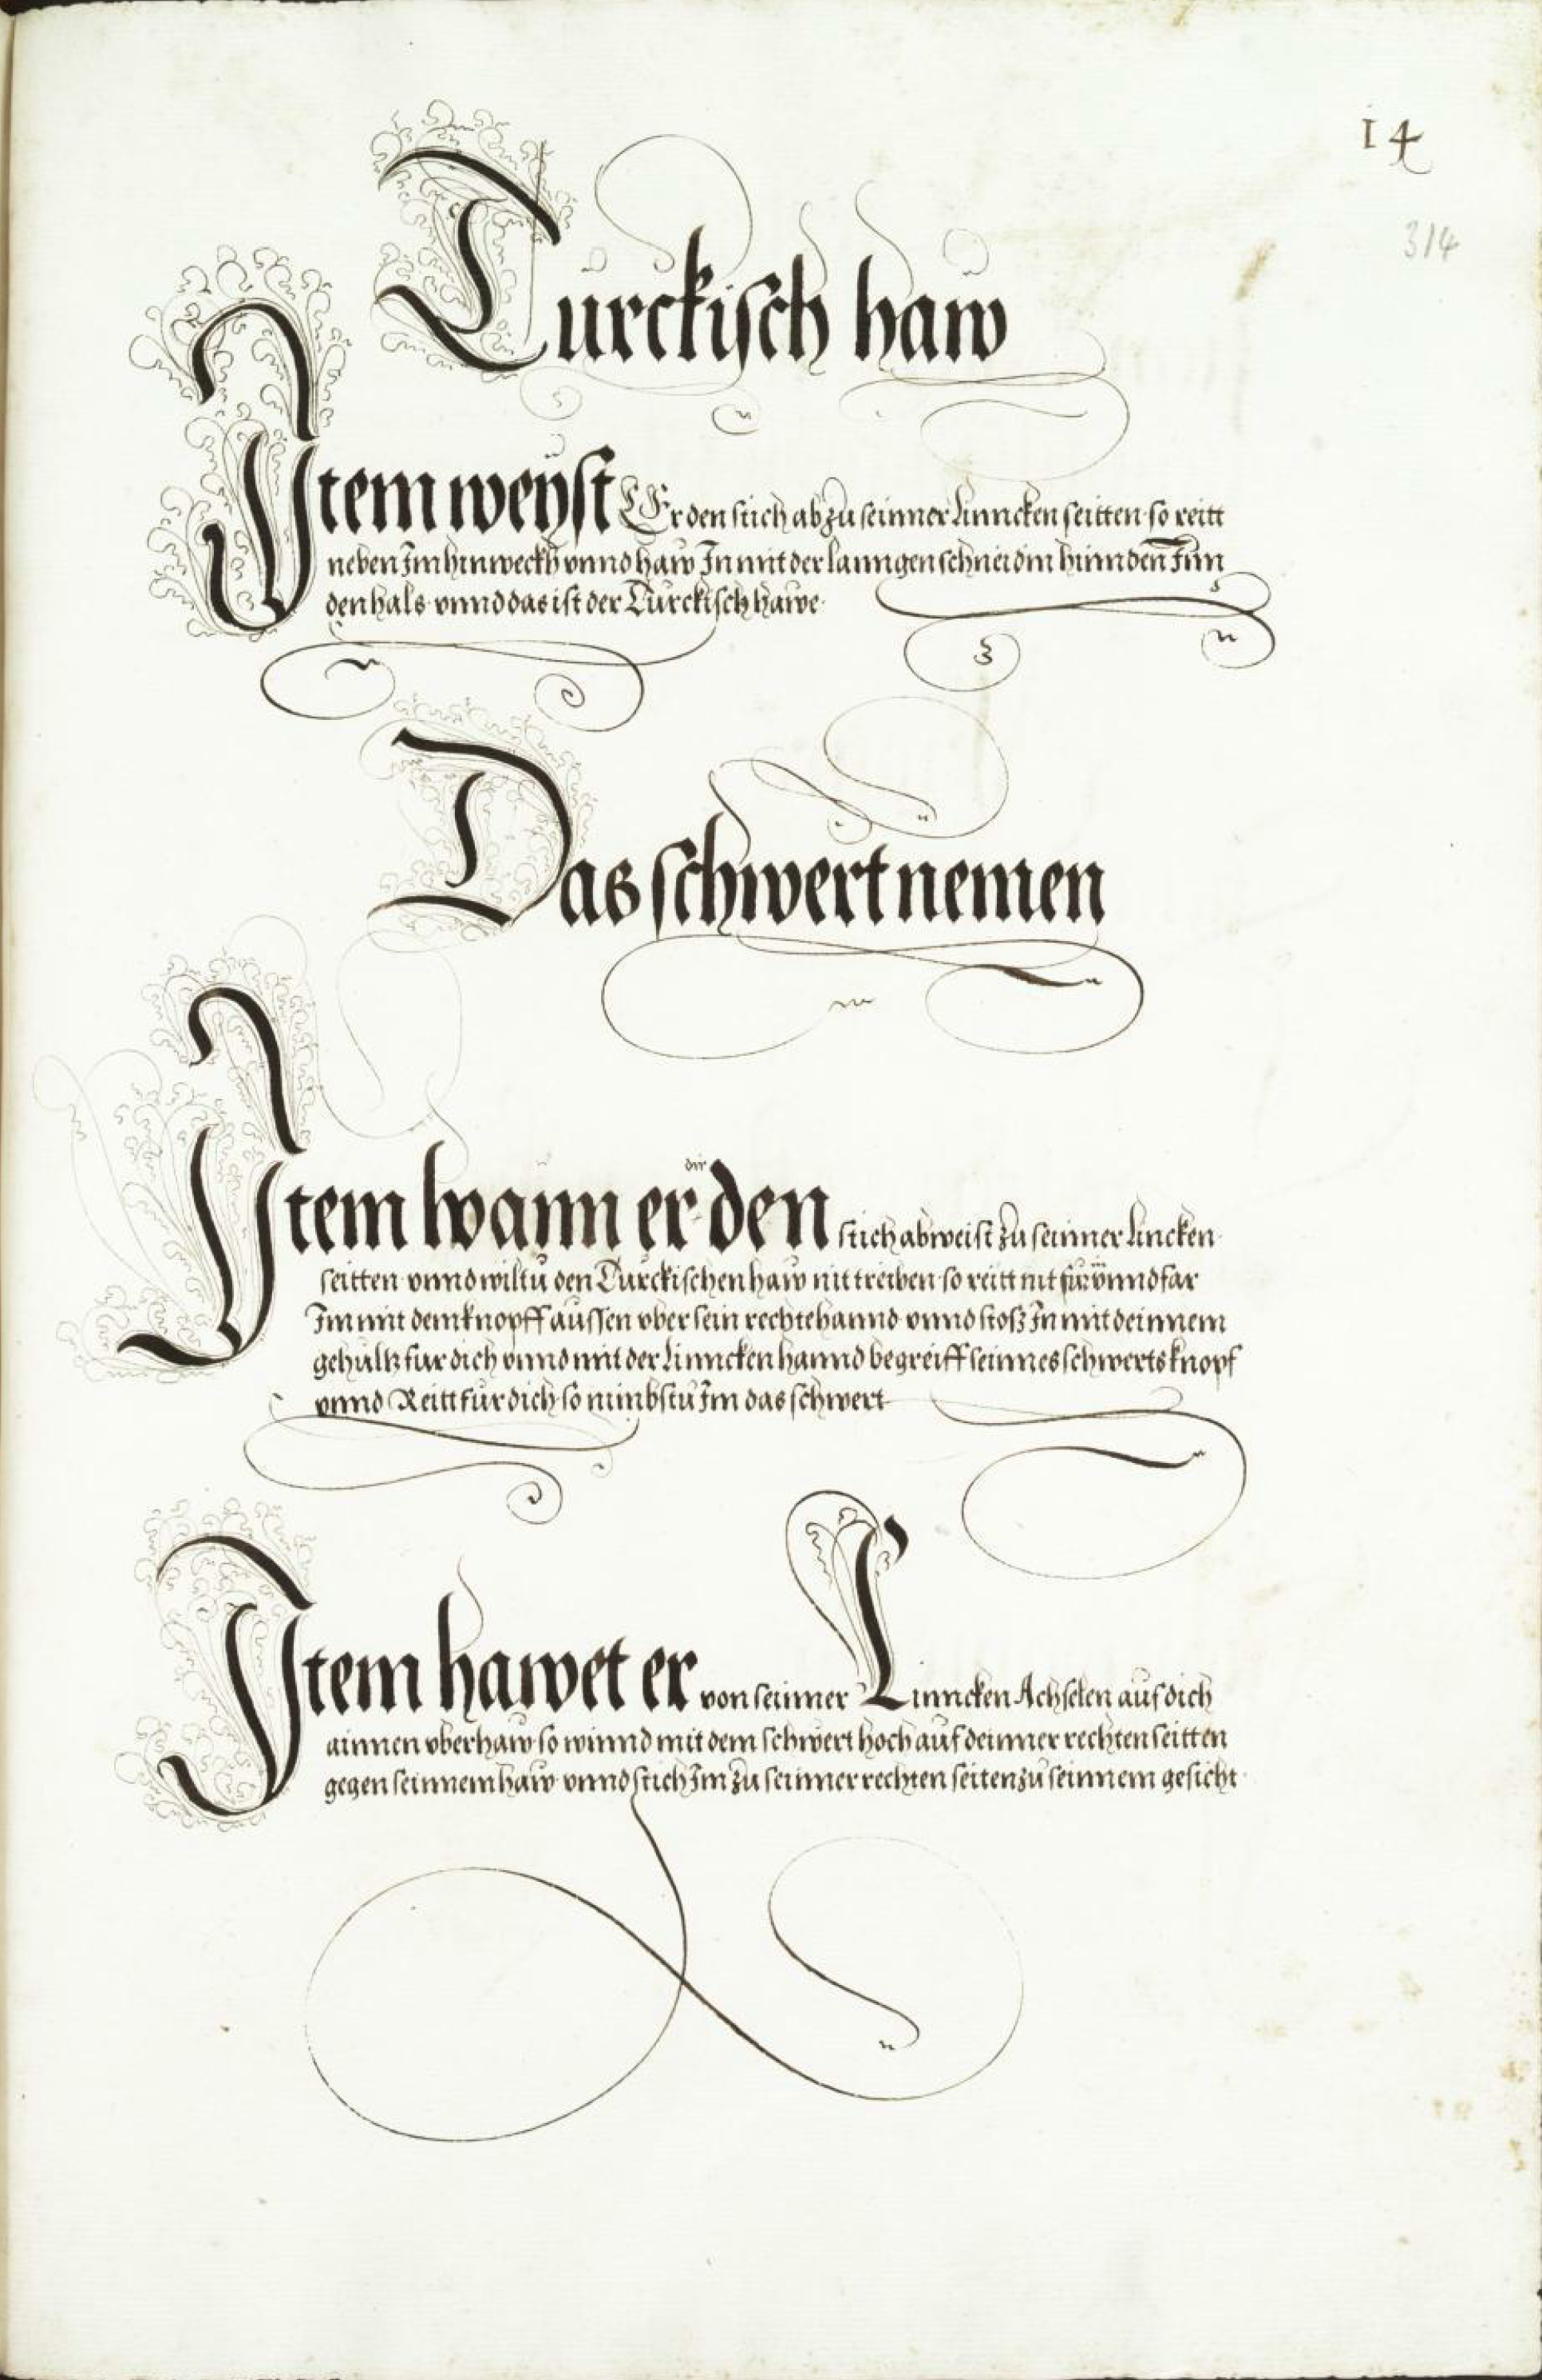 14
314
Turckisch haw
Item weyst Er den stich ab zu seinner linncken seitten so reitt
neben Im hinweckh vnnd haw In mit der lanngen schneidin hinnden Inn
den hals vnnd das ist der Türckisch hawe
Das schwert nemen
dir
Item wann er den stich abweist zu seinner lincken
seitten vnnd wiltu den Türckischen haw nit treiben so reitt nit für vnnd far
Im mit dem knopff aussen vber sein rechte hannd vnnd stoß In mit deinnem
gehültz für dich vnnd mit der linncken hannd begreiff seinnes schwerts knopf
vnnd Reitt für dich so nimbstu Im das schwert
Item hawet er von seinner Linncken Achselen auf dich
ainnen oberhaw so winnd mit dem schwert hoch auf deinner rechten seitten
gegen seinnem haw vnnd stich Im zu seinner rechten seiten zu seinnem gesicht